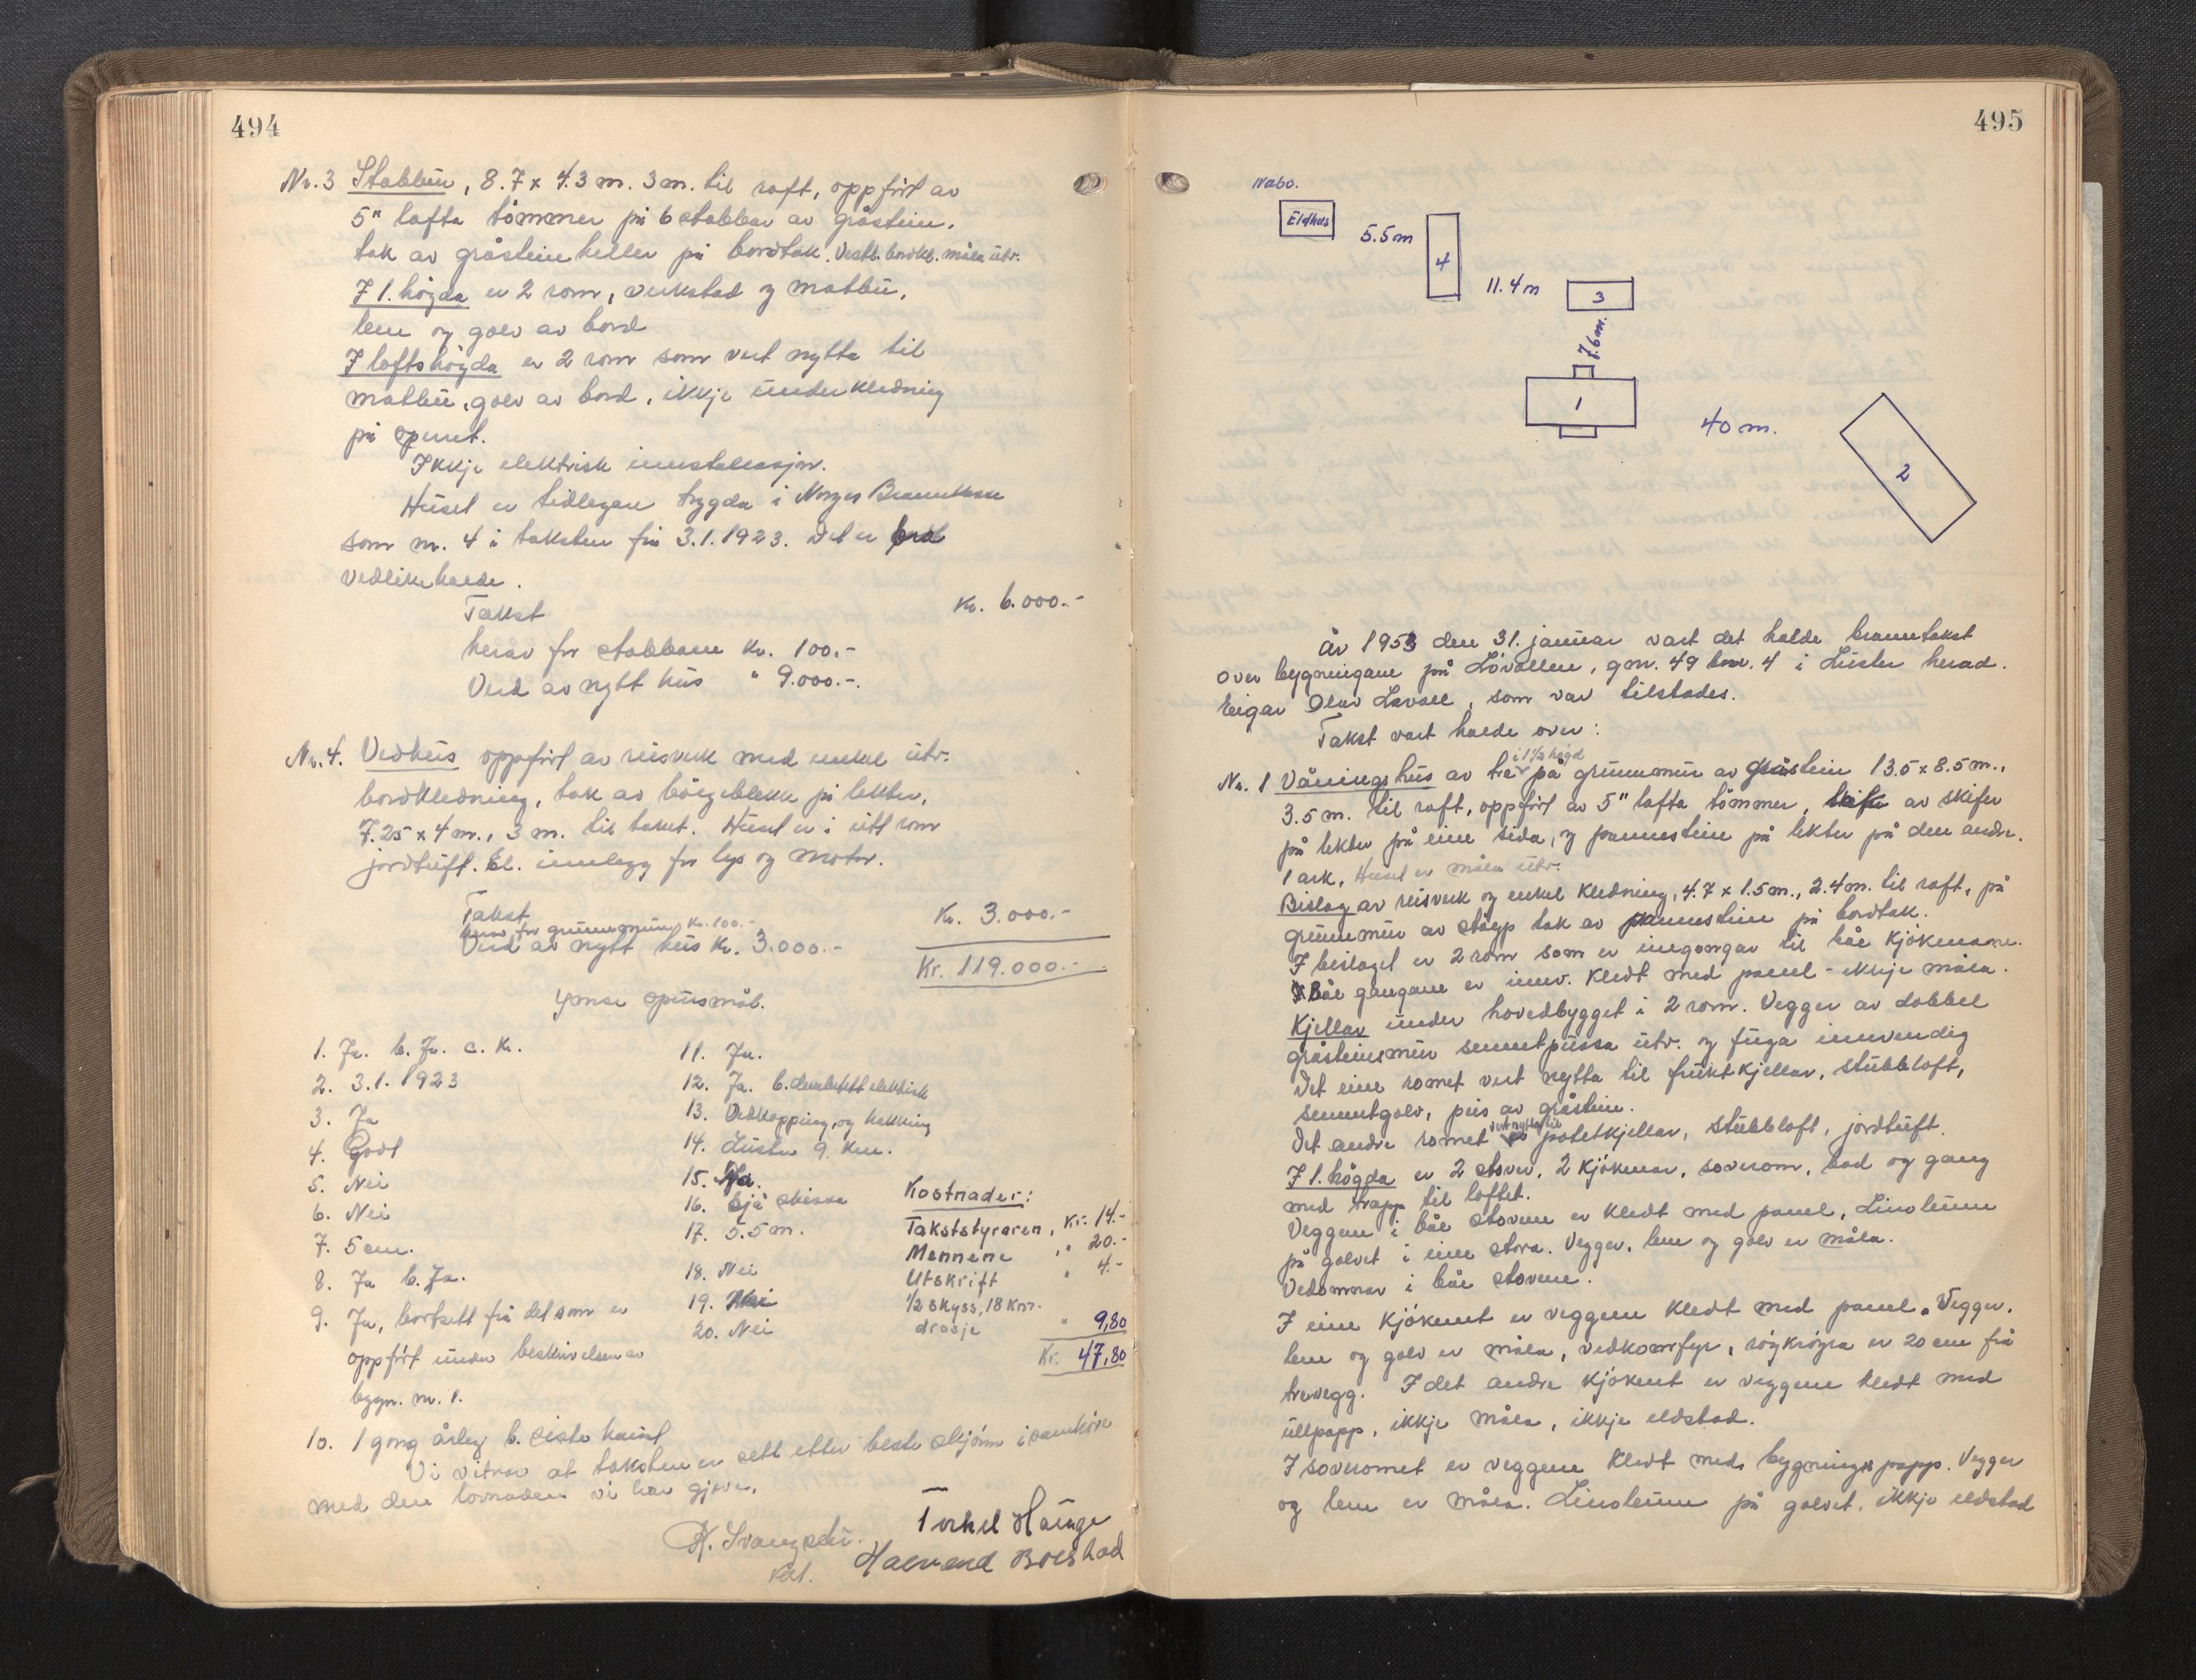 494
Nr. 3 Stabbur, 8.7 x 4.3 m. 3 m. til raft, oppført av
5" lafta tømmer på 6 stabbar av gråstein.
tak av gråsteinheller på bordtak. Vestl. bordkl. måla utv.
I 1. høgda er 2 rom, verkstad og matbu.
lem og golv av bord
I loftshøgda er 2 rom som vert nytta til
matbu, golv av bord, ikkje underkledning
på sperret.
Ikkje elektrisk innstallasjon.
Huset er tidlegare trygda i Norges Brannkasse
som nr. 4 i taksten frå 3.1.1923. Det er bra
vedlikehalde.
Takst Kr. 6.000.-
herav for stabbane Kr. 100.-
Verd av nytt hus " 9.000.-.
Nr. 4. Vedhus oppført av reisverk med enkel utv.
bordkledning, tak av bølgeblekk på lekter,
7.25 x 4 m., 3 m. til taket. Huset er i eitt rom
jordtuft. El. innlegg for lys og motor.
Takst Kr. 3.000.-
herav for grunnmuren Kr. 100.-
Verd av nytt hus Kr. 3.000.-
Kr. 119.000.-
Ymse spursmål.
1. Ja. b. Ja. c. Kr.
2. 3.1.1923
3. Ja
4. Godt
5. Nei
6. Nei
7. 5 cm.
8. Ja b. Ja.
9. Ja, bortsett frå det som er
oppført under beskrivelsen av
bygn. nr. 1.
10. 1 gong årleg b. siste haust
11. Ja.
12. Ja. b.
13. Vedkapping, og hakking
14. Luster 9. km.
15. Ja.
16. Sjå skissa
17. 5.5 m.
18. Nei
19. Nei
20. Nei
Kostnader:
Takststyraren, Kr. 14.-
Mennene " 20.-
Utskrift " 4.-
1/2 skyss, 18 km.
drosje " 9,80
Kr. 47,80
Vi vitnar at taksten er sett etter beste skjønn i samhøve
med den lovnaden vi har gjeve.
Torkel Hauge
Halvard Bolstad
495
Nabo.
Eldhus
5.5 m
4
11.4 m
3
7.6 m.
1
40 m.
2
År 1953 den 31. januar vart det halde branntakst
over bygningane på Lövallen, gnr. 49 bnr. 4 i Luster herad.
Eigar Olav Lavoll, som var tilstades.
Takst vart halde over:
Nr. 1 Våningshus av tre i 1 1/2 høgd på grunnmur av gråstein 13.5 x 8.5 m.,
3.5 m. til raft, oppført av 5" lafta tømmer, av skifer
på lekter på eine sida, og pannestein på lekter på den andre.
1 ark, Huset er måla utv.
Bislag av reisverk og enkel kledning, 4.7 x 1.5 m., 2.4 m. til raft, på
grunnmur av støyp tak av pannestein på bordtak.
I beislaget er 2 rom som er inngongar til båe kjøkenane.
Båe gangane er innv. kledt med panel - ikkje måla.
Kjellar under hovedbygget i 2 rom. Vegger av dobbel
gråsteinsmur sementpussa utv. og fuga innvendig
Det eine romet vert nytta til fruktkjellar, stubbloft,
sementgolv, peis av gråstein.
Det andre romet vert nytta til potetkjellar, stubbloft, jordtuft.
I 1. høgda er 2 stover, 2 kjøkener, soverom, bad og gang
med trapp til loftet.
Veggene i båe stovene er kledt med panel, Linoleum
på golvet i eine stova. Vegger, lem og golv er måla.
Vedomnar i båe stovene.
I eine kjøkenet er veggene kledt med panel. Vegger,
lem og golv er måla, vedkomfyr, röykröyra er 20 cm frå
trevegg. I det andre kjøkent er veggene kledt med
ullpapp, ikkje måla, ikkje eldstad.
I soveromet er veggene kledt med bygningspapp. Vegger
og lem er måla. Linoleum på golvet, ikkje eldstad